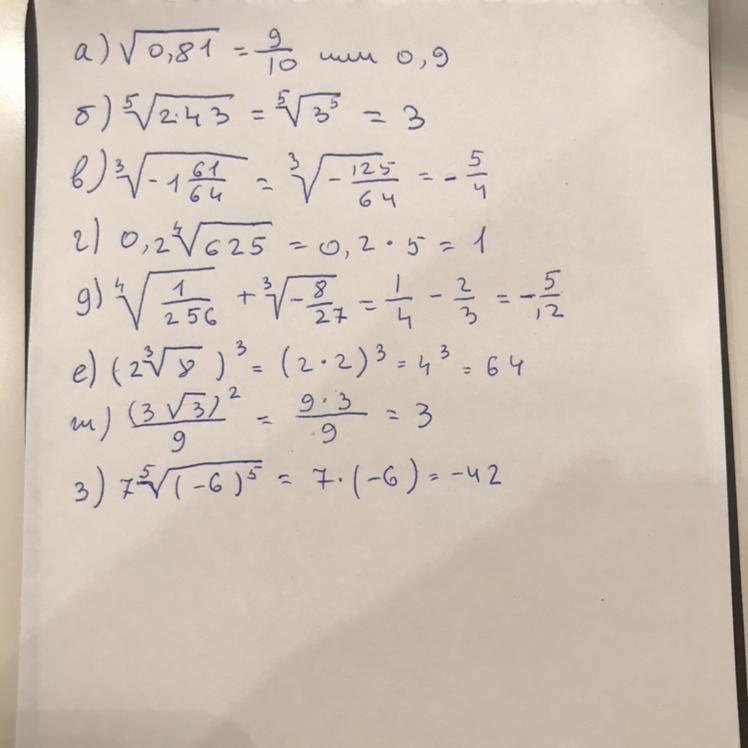 а) √0,81 = 9/10 или 0,9
б) ⁵√2·43 = ⁵√3⁵ = 3
в) ³√-1 61/64 = ³√-125/64 = -5/4
г) 0,2 ⁴√625 = 0,2 · 5 = 1
д) ⁴√1/256 + ³√-8/27 = 1/4 - 2/3 = -5/12
е) (2 ³√8)³ = (2·2)³ = 4³ = 64
ж) (3√3)²/9 = 9·3/9 = 3
з) 7 ⁵√(-6)⁵ = 7·(-6) = -42